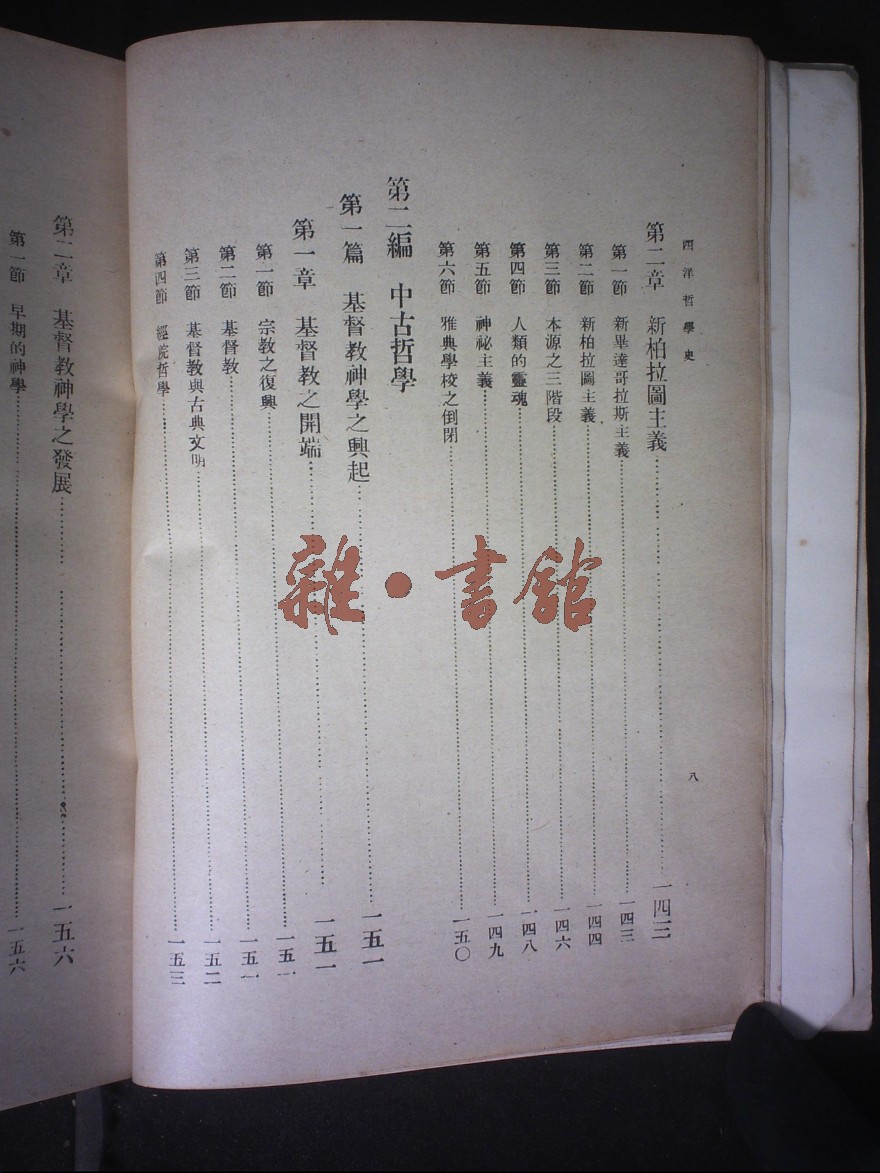 西洋哲學史
八
第二章 新柏拉圖主義……一四三
第一節 新畢達哥拉斯主義……一四三
第二節 新柏拉圖主義……一四四
第三節 本源之三階段……一四六
第四節 人類的靈魂……一四八
第五節 神祕主義……一四九
第六節 雅典學校之倒閉……一五〇
第二編 中古哲學
第一篇 基督教神學之興起……一五一
第一章 基督教之開端……一五一
第一節 宗教之復興……一五一
第二節 基督教……一五一
第三節 基督教與古典文明……一五二
第四節 經院哲學……一五三
第二章 基督教神學之發展……一五六
第一節 早期的神學……一五六
雜·書館